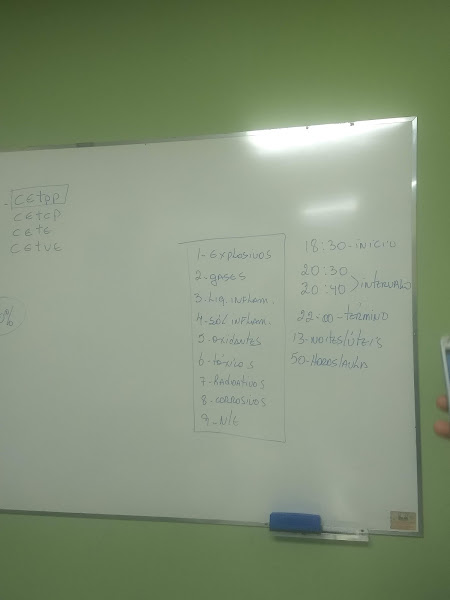 CEtPP
CEtCP
CEtE
CEtVE
%
1- EXPLOSIVOS
2- GASES
3- LIQ. INFLAM.
4- SÓL INFLAM.
5- OXIDANTES
6- TÓXICOS
7- RADIOATIVOS
8- CORROSIVOS
9- N/E
18:30- INICIO
20:30
20:40 > INTERVALO
22:00- TÉRMINO
13- NOITES/ÚTEIS
50- HORAS/AULA